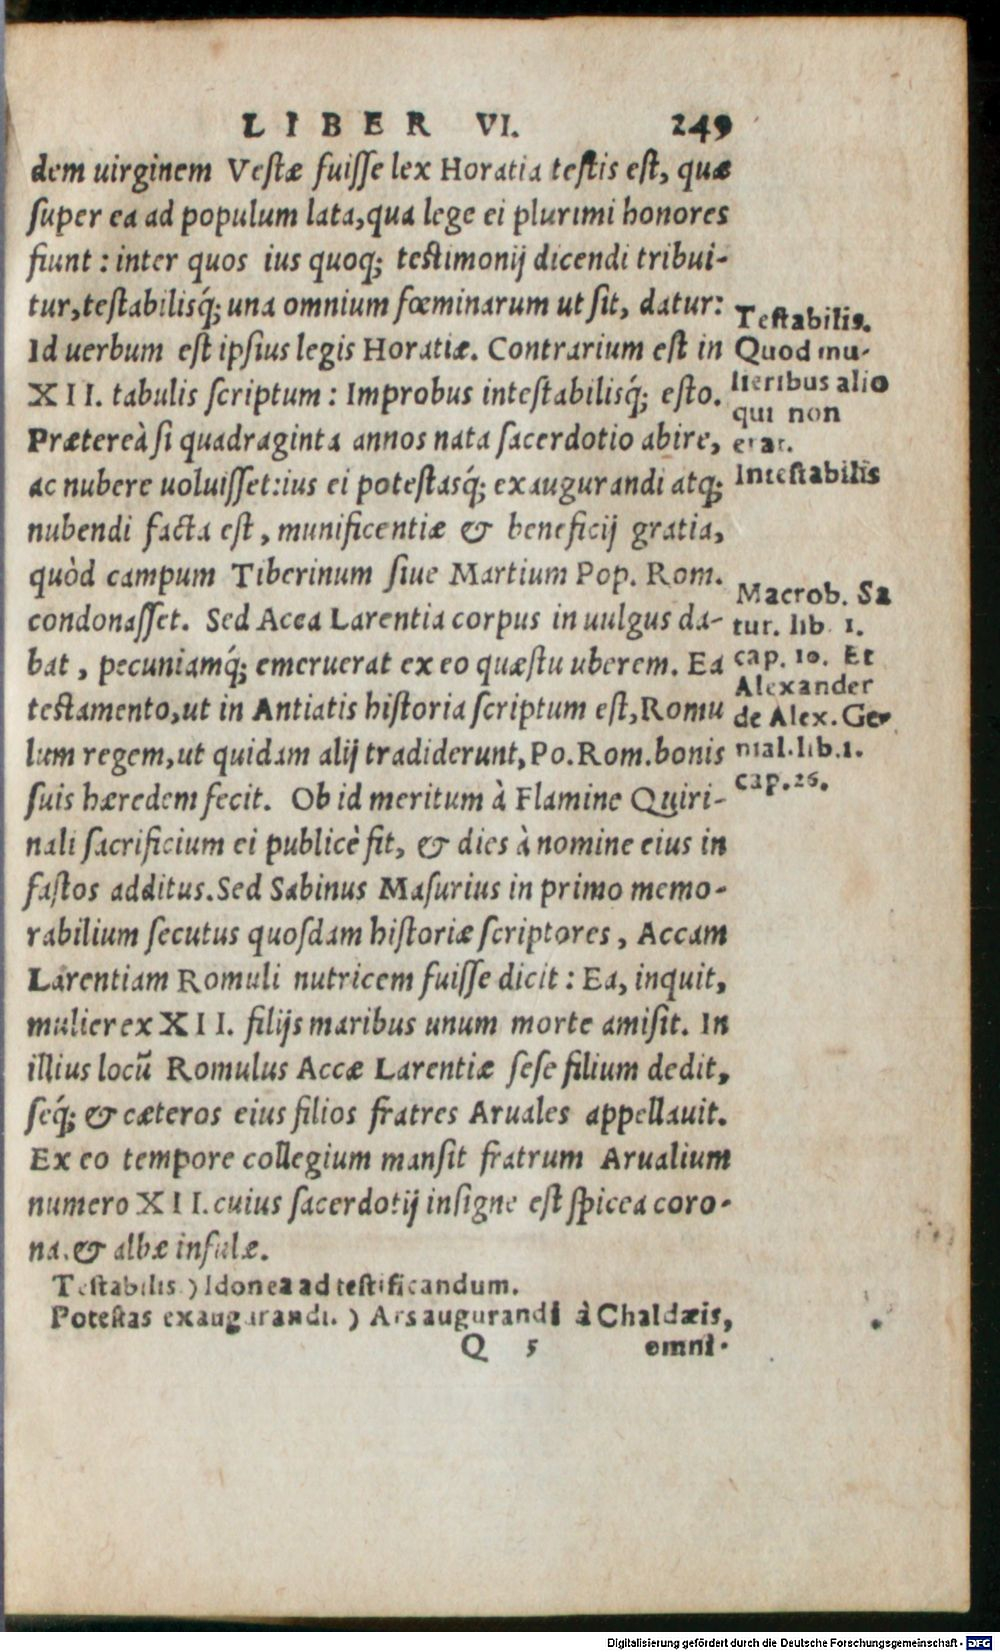 LIBER VI. 249
dem uirginem Vestæ fuisse lex Horatia testis est, quæ
super ea ad populum lata, qua lege ei plurimi honores
fiunt: inter quos ius quoq; testimonij dicendi tribui-
tur, testabilisq́; una omnium fœminarum ut sit, datur:
Id uerbum est ipsius legis Horatiæ. Contrarium est in
XII. tabulis scriptum: Improbus intestabilisq́; esto.
Prætereà si quadraginta annos nata sacerdotio abire,
ac nubere uoluisset: ius ei potestasq́; exaugurandi atq;
nubendi facta est, munificentiæ & beneficij gratia,
quòd campum Tiberinum siue Martium Pop. Rom.
condonasset. Sed Acca Larentia corpus in uulgus da-
bat, pecuniamq́; emeruerat ex eo quæstu uberem. Ea
testamento, ut in Antiatis historia scriptum est, Romu
lum regem, ut quidam alij tradiderunt, Po. Rom. bonis
suis hæredem fecit. Ob id meritum à Flamine Quiri-
nali sacrificium ei publicè fit, & dies à nomine eius in
fastos additus. Sed Sabinus Masurius in primo memo-
rabilium secutus quosdam historiæ scriptores, Accam
Larentiam Romuli nutricem fuisse dicit: Ea, inquit,
mulier ex XII. filijs maribus unum morte amisit. In
illius locũ Romulus Accæ Larentiæ sese filium dedit,
seq́; & cæteros eius filios fratres Aruales appellauit.
Ex eo tempore collegium mansit fratrum Arualium
numero XII. cuius sacerdotij insigne est spicea coro-
na. & albæ infulæ.
Testabilis.) Idonea ad testificandum.
Potestas exaugurandi.) Ars augurandi à Chaldæis,
Q 5 omni-
Testabilis.
Quod mu-
lieribus alio
qui non
erat.
Intestabilis
Macrob. Sa
tur. lib. 1.
cap. 10. Et
Alexander
de Alex. Ge-
nial. lib. 1.
cap. 26.
Digitalisierung gefördert durch die Deutsche Forschungsgemeinschaft - DFG